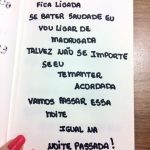 FICA LIGADA
SE BATER SAUDADE EU
VOU LIGAR DE
MADRUGADA
TALVEZ NÃO SE IMPORTE
SE EU
TE MANTER
ACORDADA
VAMOS PASSAR ESSA
NOITE
IGUAL NA
NOITE PASSADA!